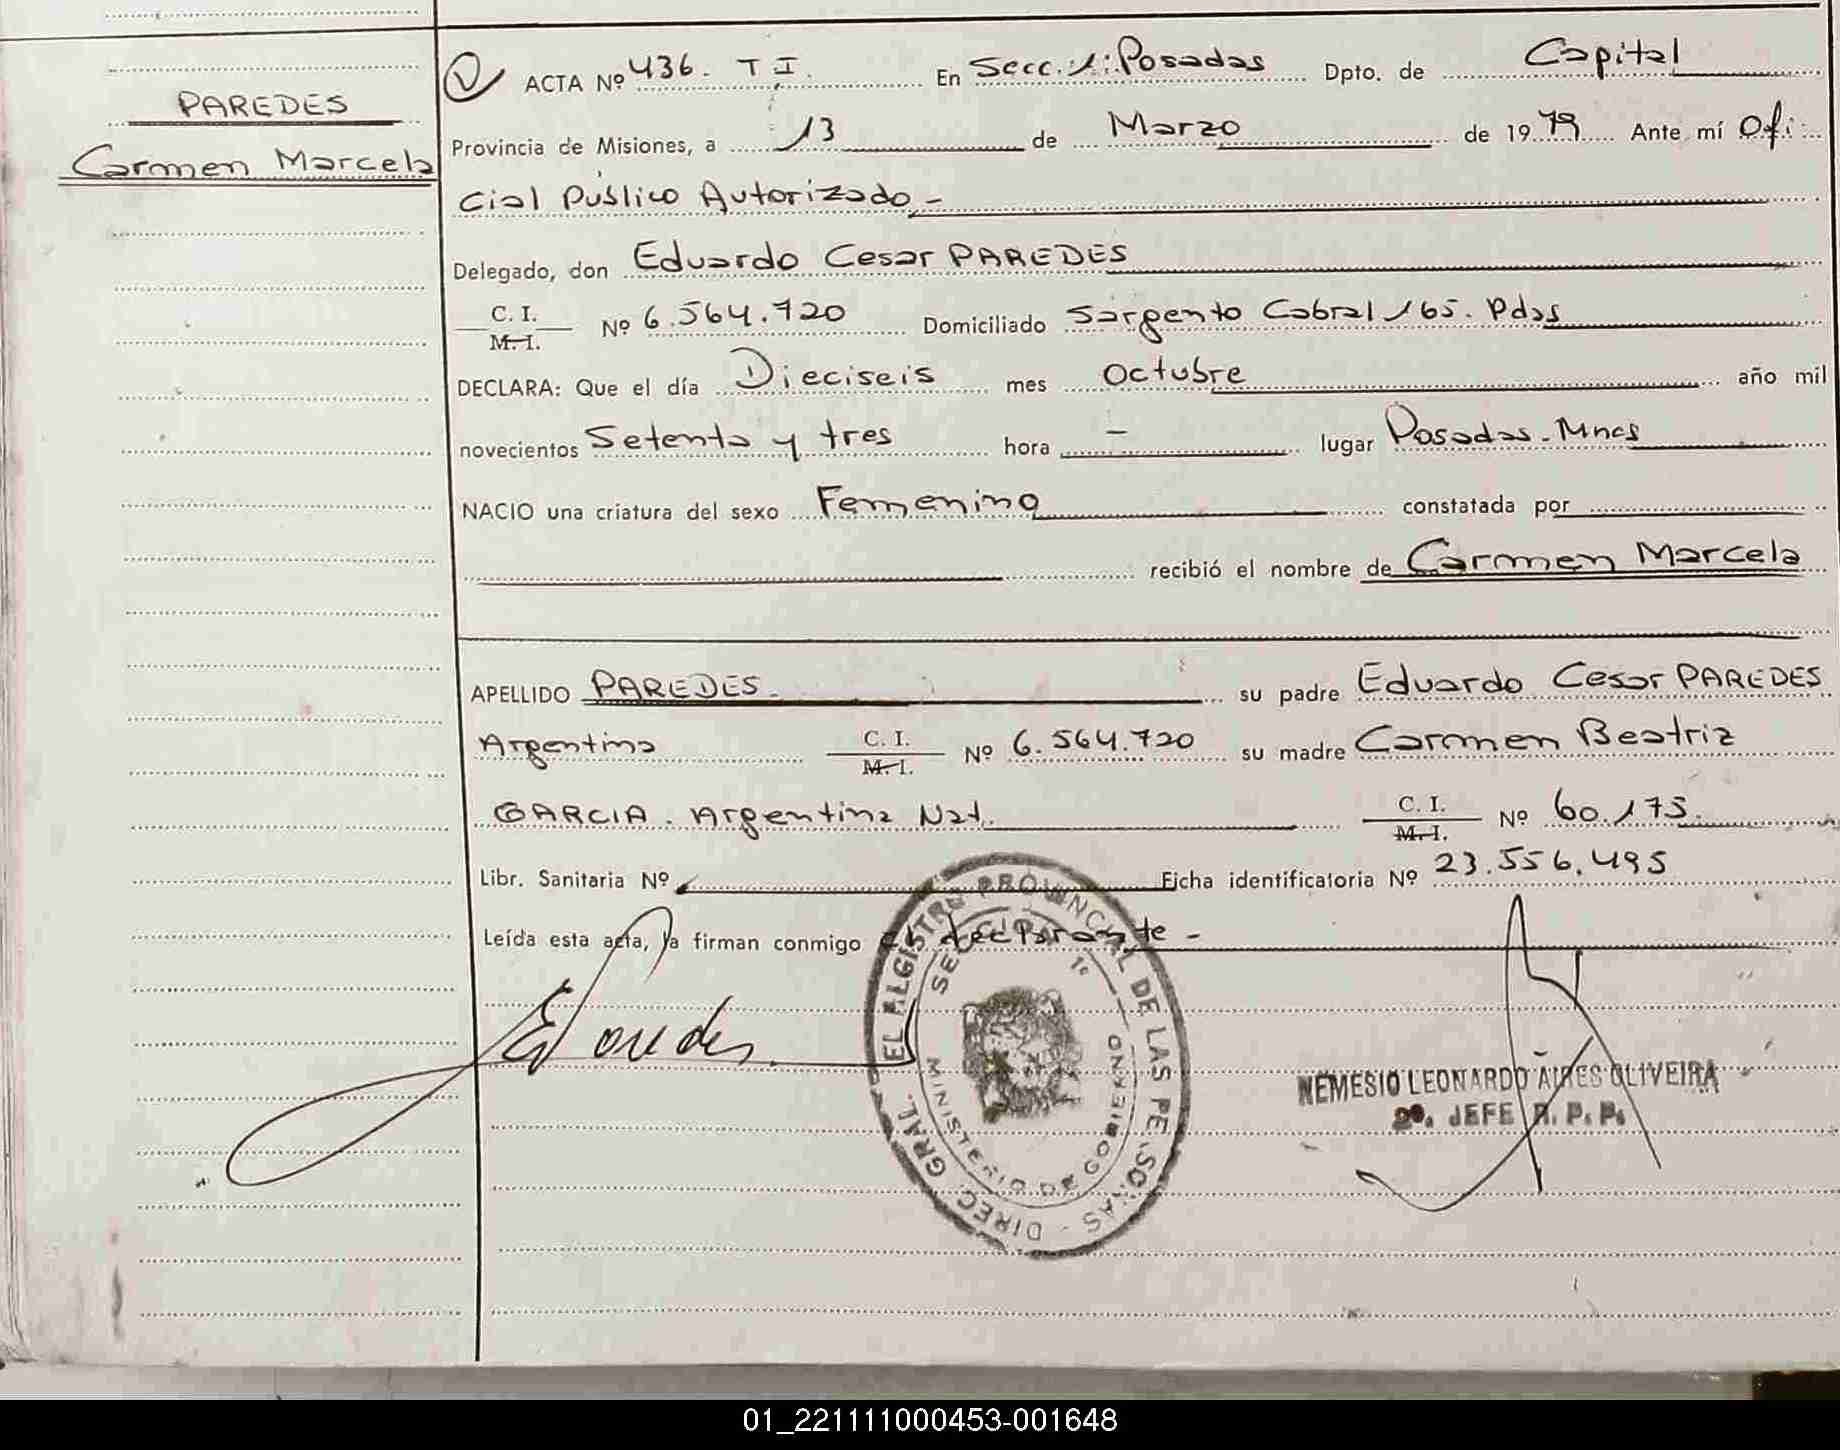 PAREDES
Carmen Marcela
V ACTA Nº 436. T I. En Secc. 1: Posadas Dpto. de Capital
Provincia de Misiones, a 13 de Marzo de 1979 Ante mí Ofi:
cial Público Autorizado -
Delegado, don Eduardo Cesar PAREDES
C. I. M. I. Nº 6.564.720 Domiciliado Sargento Cabral 165. Pdas
DECLARA: Que el día Dieciseis mes octubre año mil
novecientos Setenta y tres hora - lugar Posadas. Mnes
NACIO una criatura del sexo Femenino constatada por
recibió el nombre de Carmen Marcela
APELLIDO PAREDES. su padre Eduardo Cesar PAREDES
Argentino C. I. M. I. Nº 6.564.720 su madre Carmen Beatriz
GARCIA. Argentina Nat. C. I. M. I. Nº 60.175.
Libr. Sanitaria Nº Ficha identificatoria Nº 23.556.495
Leída esta acta, la firman conmigo el declarante -
EParedes
DIREC. GRAL. DEL REGISTRO PROVINCIAL DE LAS PERSONAS -
MINISTERIO DE GOBIERNO
NEMESIO LEONARDO AIRES OLIVEIRA
2º. JEFE R. P. P.
01_221111000453-001648